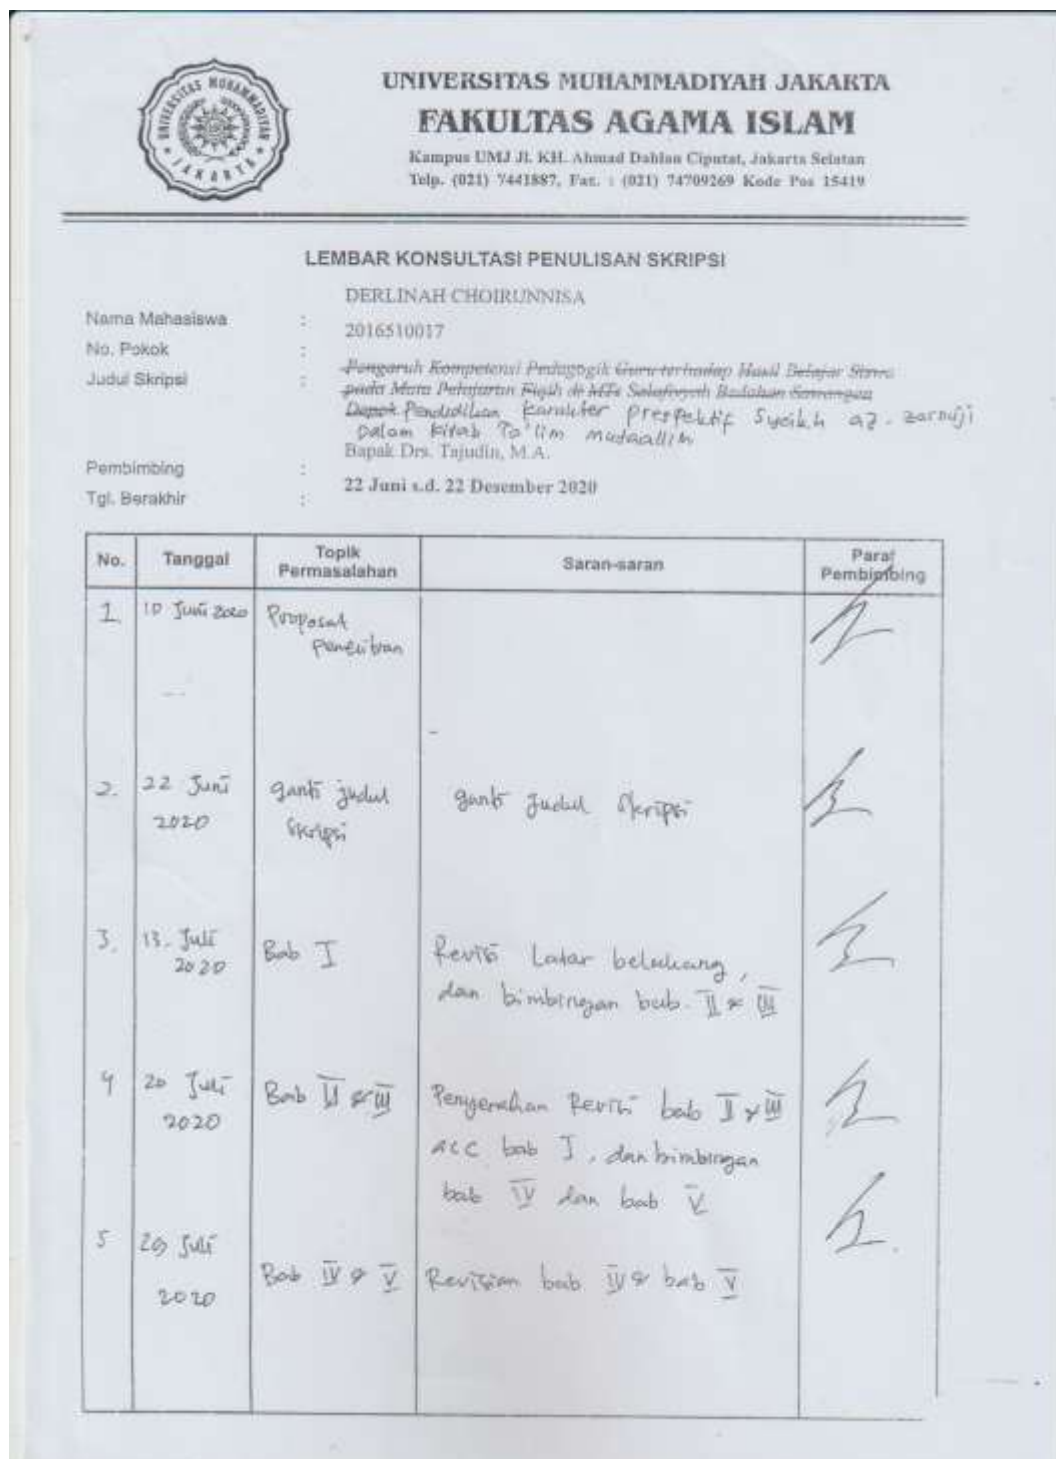 UNIVERSITAS MUHAMMADIYAH JAKARTA
UNIVERSITAS MUHAMMADIYAH JAKARTA
FAKULTAS AGAMA ISLAM
Kampus UMJ Jl. KH. Ahmad Dahlan Ciputat, Jakarta Selatan
Telp. (021) 7441887, Fax. : (021) 74709269 Kode Pos 15419
LEMBAR KONSULTASI PENULISAN SKRIPSI
DERLINAH CHOIRUNNISA
Nama Mahasiswa :
2016510017
No. Pokok :
Judul Skripsi : Pengaruh Kompetensi Pedagogik Guru terhadap Hasil Belajar Siswa
pada Mata Pelajaran Fiqih di MTs Salafiyyah Bedahan Sawangan
Depok Pendidikan karakter prespektif Syeikh az-zarnuji
Dalam kitab Ta'lim
Bapak Drs. Tajudin, M.A.
Pembimbing :
22 Juni s.d. 22 Desember 2020
Tgl. Berakhir :
No. Tanggal Topik Permasalahan Saran-saran Paraf Pembimbing
1. 10 Juni 2020 Proposal
Penelitian
2. 22 Juni ganti judul ganti judul skripsi
2020 skripsi
3. 13. Juli Bab I Revisi Latar belakang,
2020 dan bimbingan bab. II & III
4 20 Juli Bab II & III Penyerahan Revisi bab II & III
2020 acc bab I, dan bimbingan
bab IV dan bab V
5 29 Juli
Bab IV & V Revisian bab IV & bab V
2020